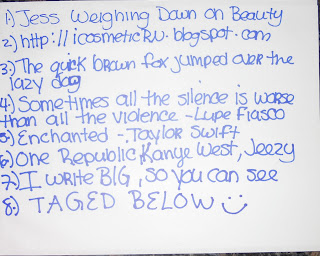 1) Jess Weighing Dawn on Beauty
2) http://icosmeticRU.blogspot.com
3.) The quick brown fox jumped over the
lazy dog
4.) Sometimes all the silence is worse
than all the violence - Lupe Fiasco
5.) Enchanted - Taylor Swift
6) One Republic, Kanye West, Jeezy
7.) I write BIG, so you can see
8.) TAGED BELOW